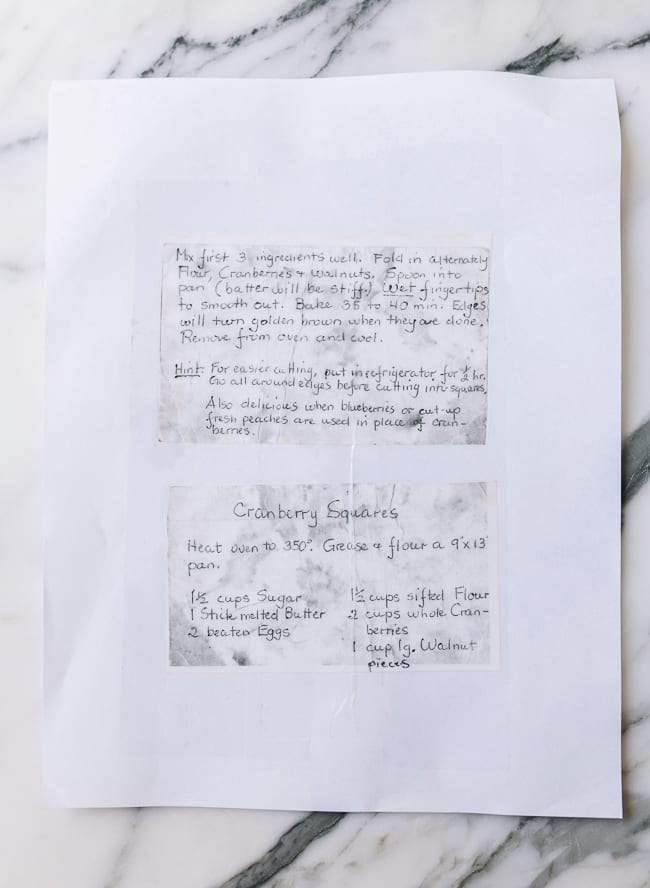 Mix first 3 ingredients well. Fold in alternately
Flour, Cranberries & Walnuts. Spoon into
pan (batter will be stiff.) Wet fingertips
to smooth out. Bake 35 to 40 min. Edges
will turn golden brown when they are done.
Remove from oven and cool.
Hint: For easier cutting, put in refrigerator for ½ hr.
Go all around edges before cutting into squares.
Also delicious when blueberries or cut-up
fresh peaches are used in place of cran-
berries.
Cranberry Squares
Heat oven to 350°. Grease & flour a 9"x13"
pan.
1½ cups Sugar
1 Stick melted Butter
2 beaten Eggs
1½ cups sifted Flour
2 cups whole Cran-
berries
1 cup lg. Walnut
pieces